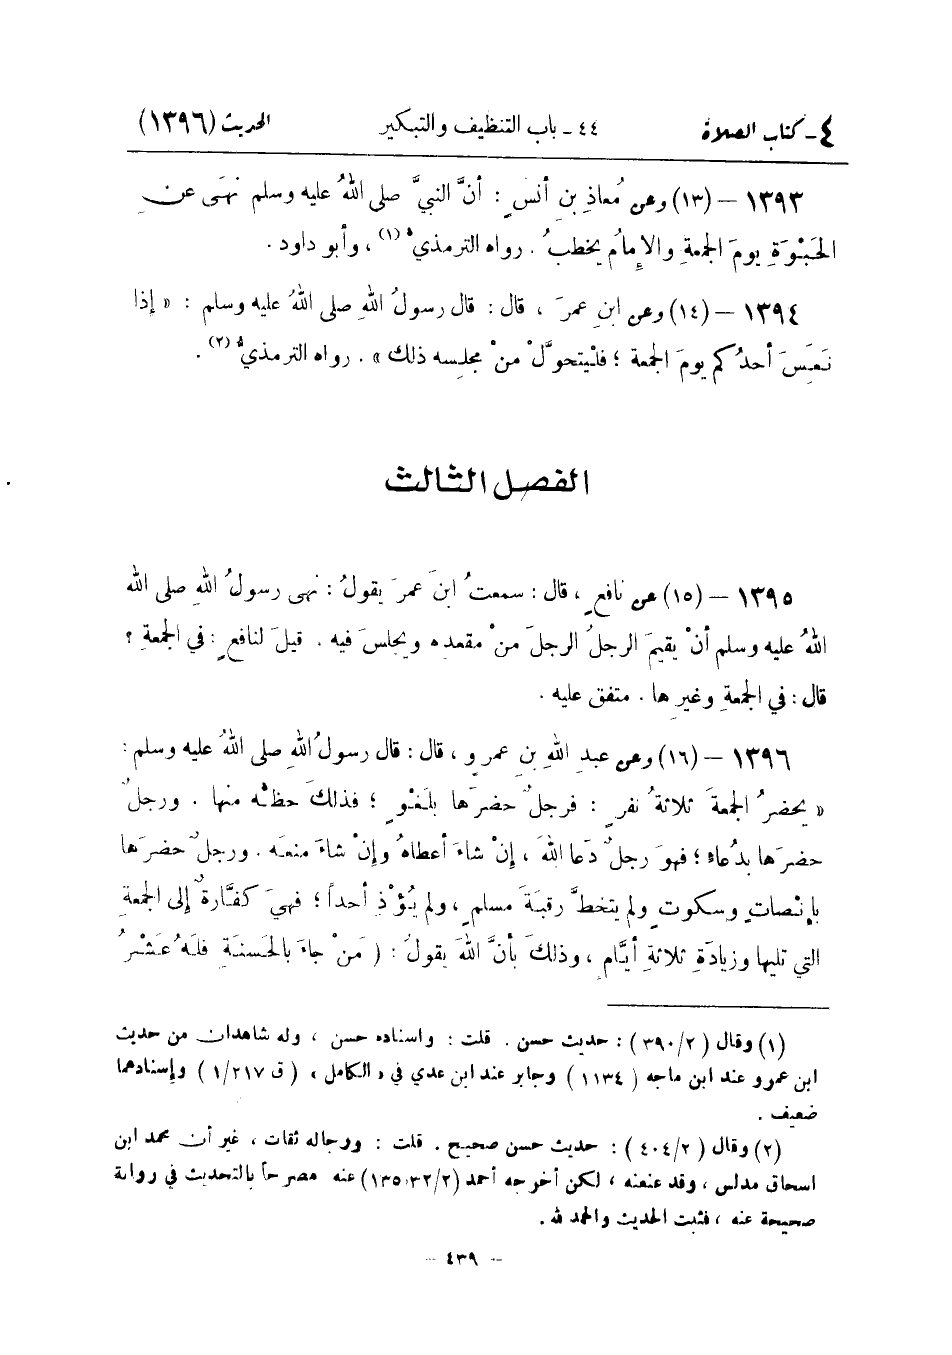 ٤ - كتاب الصلاة ٤٤ - باب التنظيف والتبكير الحديث (١٣٩٦)
١٣٩٣ – (١٣) وعن مُعاذِ بنِ أنسٍ : أنَّ النبيَّ صلى اللهُ عليه وسلم نهَى عنِ
الحَبْوَةِ يومَ الجمعةِ والإِمامُ يخطبُ . رواه الترمذيُّ (١) ، وأبو داود .
١٣٩٤ – (١٤) وعن ابنِ عمرَ ، قال : قال رسولُ اللهِ صلى اللهُ عليه وسلم : « إذا
نَعَسَ أحدُكم يومَ الجمعة ؛ فلْيتحوَّلْ منْ مجلسِه ذلك » . رواه الترمذيُّ (٢) .
الفصل الثالث
١٣٩٥ – (١٥) عن نافعٍ ، قال : سمعتُ ابنَ عمرَ يقولُ : نهى رسولُ اللهِ صلى الله
اللهُ عليه وسلم أنْ يقيمَ الرجلُ الرجلَ منْ مقعدِه ويجلسَ فيه . قيلَ لنافعٍ : في الجمعةِ ؟
قال : في الجمعةِ وغيرِها . متفق عليه .
١٣٩٦ – (١٦) وعن عبدِ اللهِ بنِ عمرٍو ، قال : قال رسولُ اللهِ صلى اللهُ عليه وسلم :
« يحضرُ الجمعةَ ثلاثةُ نفرٍ : فرجلٌ حضرَها بلَغْوٍ ؛ فذلكَ حظُّه منها . ورجلٌ
حضرَها بدُعاءٍ ؛ فهوَ رجلٌ دَعا اللهَ ، إنْ شاءَ أعطاهُ وإنْ شاءَ منعَه . ورجلٌ حضرَها
بإنْصاتٍ وسكوتٍ ولم يتخطَّ رقبةَ مسلمٍ ، ولم يُؤْذِ أحداً ؛ فهيَ كفَّارةٌ إلى الجمعةِ
التي تليها وزيادَةِ ثلاثةِ أيَّامٍ ، وذلكَ بأنَّ اللهَ يقولُ : ( مَنْ جاءَ بالحَسنَةِ فلَهُ عَشْرُ
(١) وقال ( ٣٩٠/٢ ) : حديث حسن . قلت : واسناده حسن ، وله شاهدان من حديث
ابن عمرو عند ابن ماجه ( ١١٣٤ ) وجابر عند ابن عدي في « الكامل ، ( ق ١/٢١٧ ) وإسنادهما
ضعيف .
(٢) وقال ( ٤٠٤/٢ ) : حديث حسن صحيح . قلت : ورجاله ثقات ، غير أن محمد ابن
اسحاق مدلس ، وقد عنعنه ، لكن أخرجه أحمد (١٣٥،٣٢/٢) عنه مصرحاً بالتحديث في رواية
صحيحة عنه ، فثبت الحديث والحمد لله .
– ٤٣٩ –